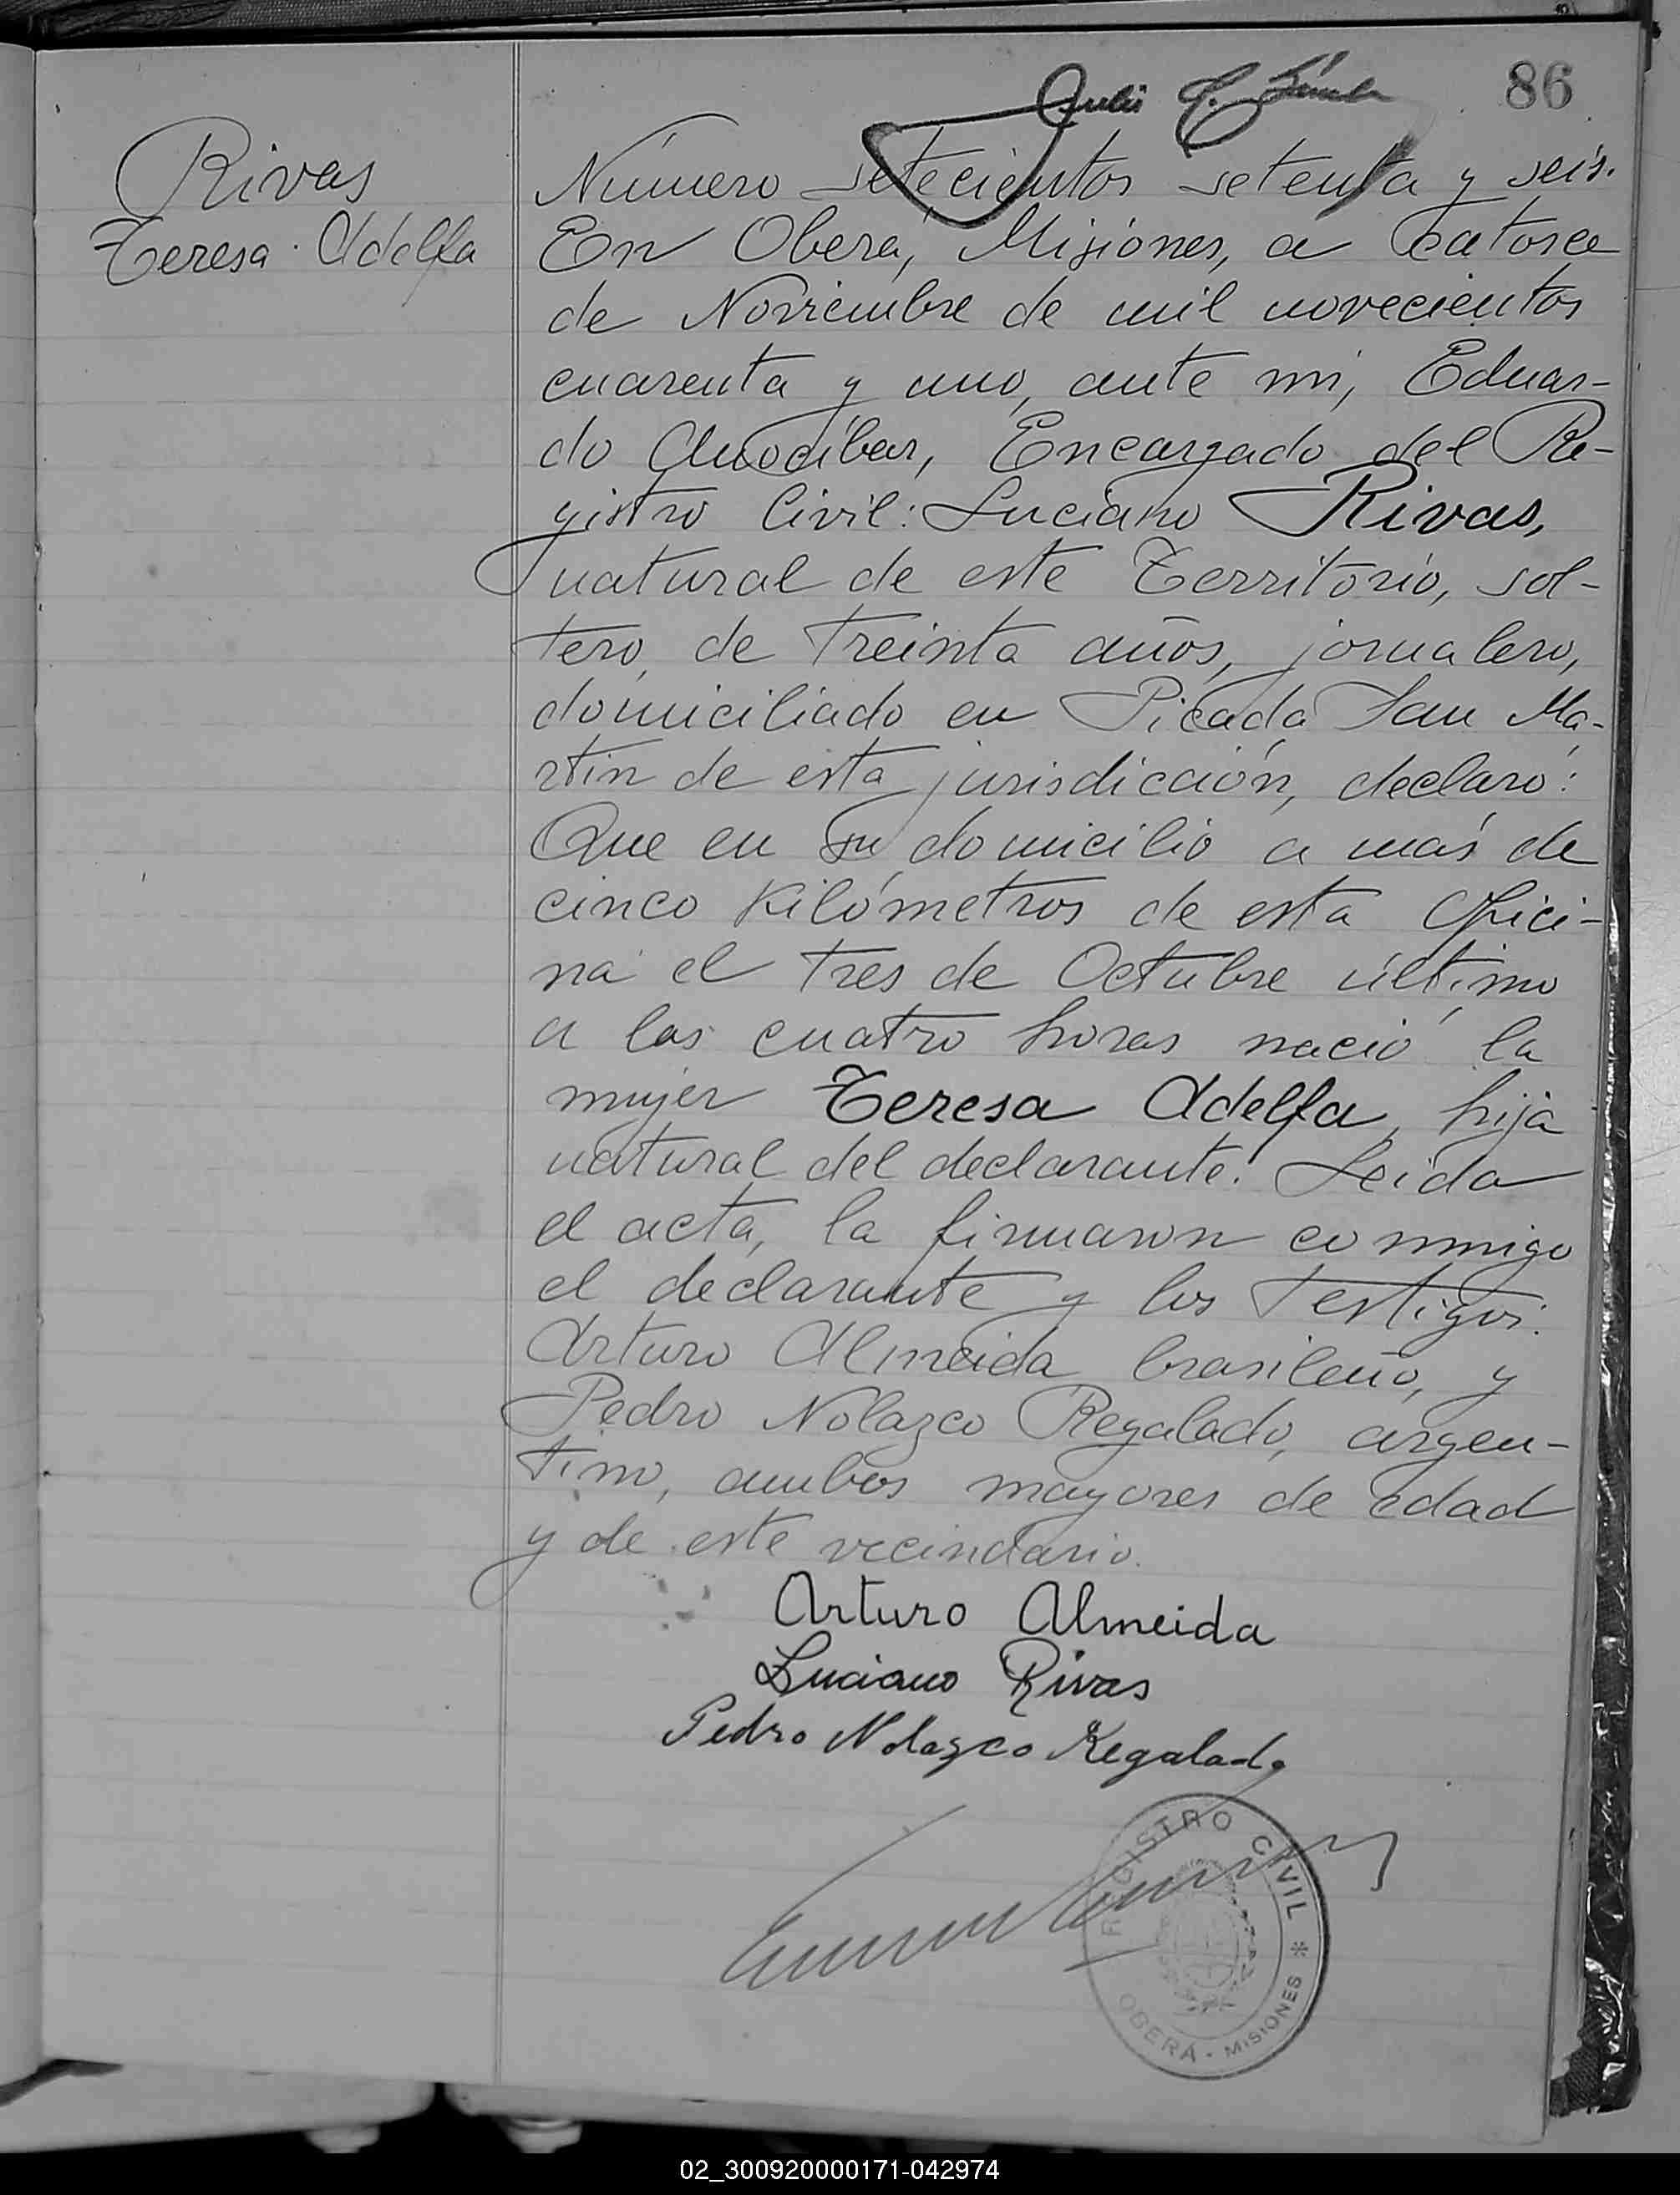 86
Rivas
Teresa Adelfa
Número setecientos setenta y seis.
En Oberá, Misiones, a catorce
de Noviembre de mil novecientos
cuarenta y uno, ante mi, Eduar-
do Anocíbar, Encargado del Re-
gistro Civil: Luciano Rivas,
natural de este Territorio, sol-
tero, de treinta años, jornalero,
domiciliado en Picada San Ma-
rtín de esta jurisdicción, declaró:
Que en su domicilio a más de
cinco Kilómetros de esta Ofici-
na el tres de Octubre último
a las cuatro horas nació la
mujer Teresa Adelfa, hija
natural del declarante. Leída
el acta, la firmaron conmigo
el declarante y los testigos:
Arturo Almeida brasileño, y
Pedro Nolazco Regalado, argen-
tino, ambos mayores de edad
y de este vecindario.
Arturo Almeida
Luciano Rivas
Pedro Nolazco Regalado
REGISTRO CIVIL *
OBERÁ - MISIONES
02_300920000171-042974